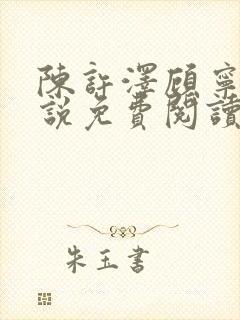 陳許澤顧寧
說免費閱讀
朱玉書